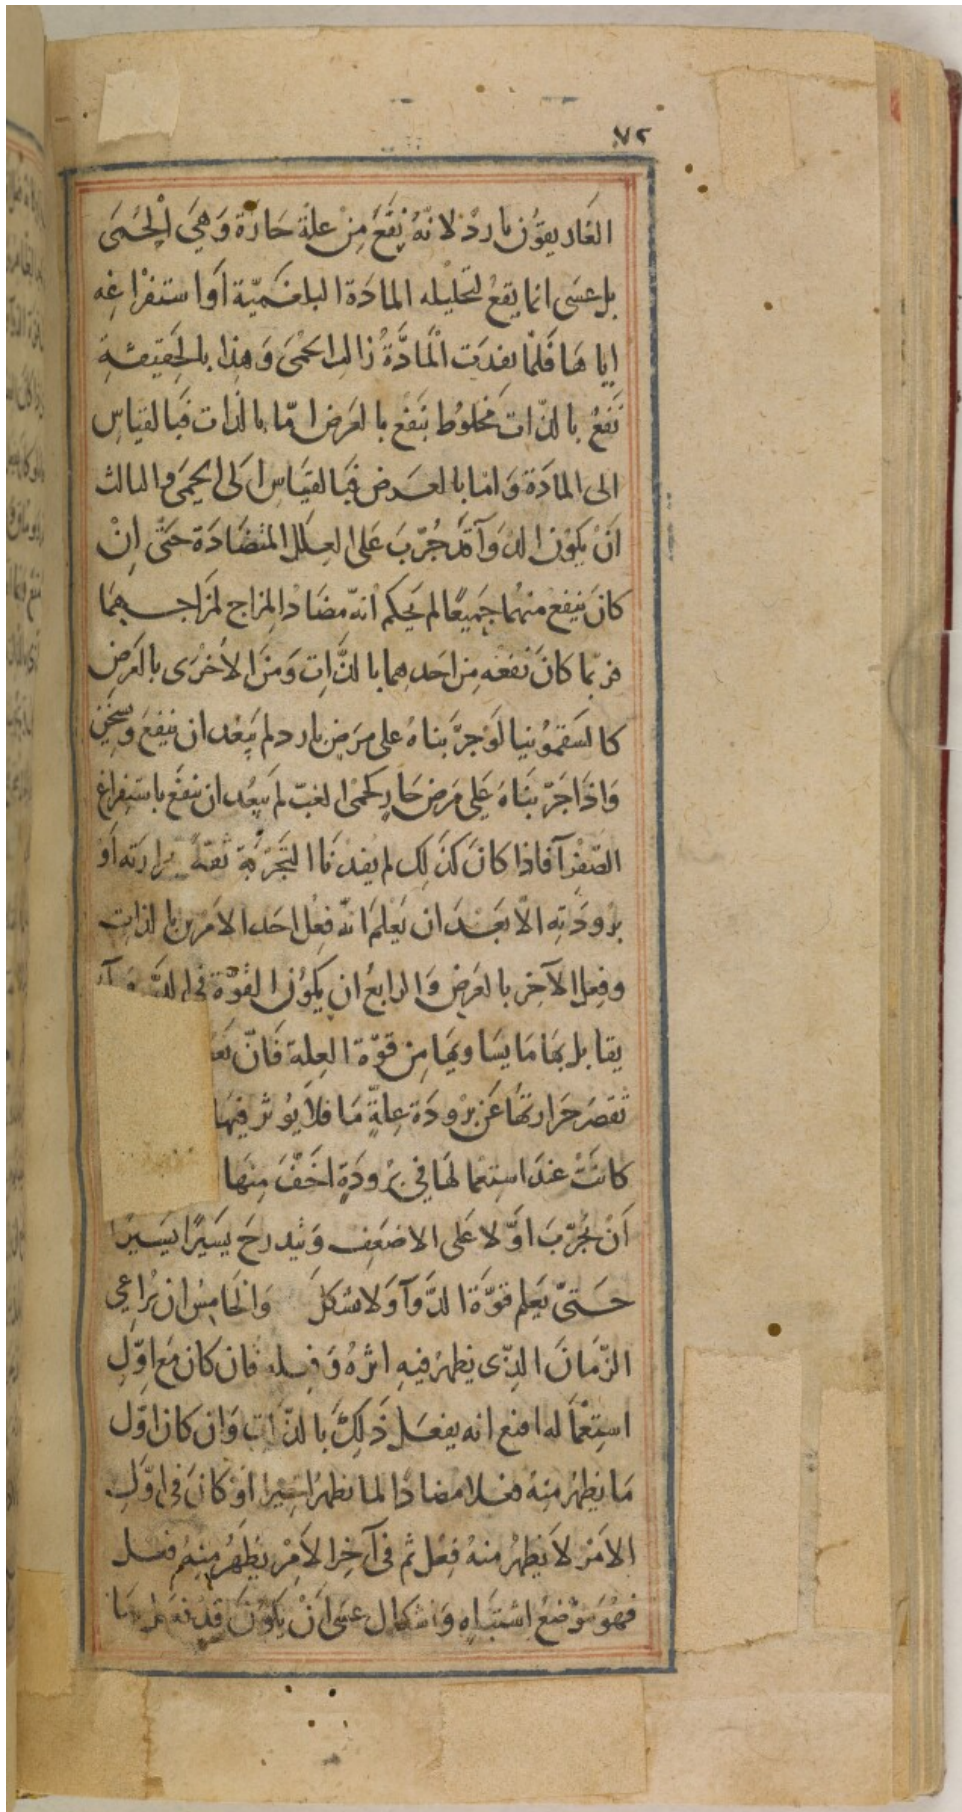 ٧٢
الغاريقون بارد لانّه نَفَعَ مِنْ علّة حَارّة وَهَيَ الْحُمَى
بل عسَى انما يقعْ لتحليله المادَة البلغَميّة اَوا ستفراغِه
ايا هَا فَلمّا نفدَت الْمَادَّةُ زالت الحمْىَ وَهذا بالحقيقةِ
نَفعُ بالذّات مخلوُط بنَفع بالعَرض امّا بالذات فَبالقياسِ
الى المادَة وَامّا بالعَرض فَبالقيَاس الَى الحمَى والثالث
اَنْ يكوُن الدّوَآءَ قد جُرّبَ عَلى العِلَل المتضَادَة حَتّى اِنْ
كانَ ينفع منهُما جَميعًا لم يحكم انّه مضَادّ المِزاج لمزاجيهمَا
فربّما كانَ نَفعَه مِن احَدهِما بالذّاتِ وَمنَ الاُخْرَى بالعَرضِ
كالسَقموُنيا لَوْ جرّبَناهُ على مرَضٍ بارد لم يَبعْد ان ينفعَ وَيسَخِن
وَاِذَا جَرّبنَاهُ عَلى مَرَض حَارٍ كحُمّى الغِبّ لم يَبعُد ان ينفَعَ باستفراغ
الصّفرآ فاذا كانَ كَذلِك لم يفدنَا التجَربَة ثقةً بحرارته اَوْ
برُودَتِه الاّ بَعْدَ ان يَعْلمَ انّه فِعْل احَد الاَمرْين بالذاتِ
وفِعلَ الآخِر بالعَرضِ وَالرابعُ ان يكوُن القوّة في الدّوآء
يقابل بهَا مَا يسَاويهَا مِن قوّة العِلة فَانّ بَعَ
تقصَر حَرارتهُا عَن برُودَة عِلةٍ مَا فَلاَ يوُثر فيهَا
كانَتْ عندَ استِعمالهَا في برُودَةٍ اخَفَّ مِنهَا
اَنْ يُجرّبَ اوَّلا عَلى الاضعَفِ وَيتدرجَ يَسَيرًا يَسَيرًا
حَتىّ يَعلم قوَّةَ الدّوَآ وَلا يشكلَ وَالخَامِسْ ان يُراعي
الزّمانَ الذّى يظهرُ فيهِ اثرُهُ وَفِعله فان كانَ مَع اوّلِ
استِعْمَالهِ اقنع انه يفعَل ذَلِكَ بالذّات وَان كان اوّل
مَا يظهرُ منِهُ فعلا مضَادّا لما يظهرُ اخيرا اَوْ كانَ في اوّلِ
الاَمْر لاَ يَظهرُ منهُ فِعْل ثم في آخِر الاَمْر يَظهَرُ مِنهُ فعل
فهوَ موْضعُ اشتباهٍ وَاشكال عسَى اَنْ يكوُنَ قد فعَل مَا